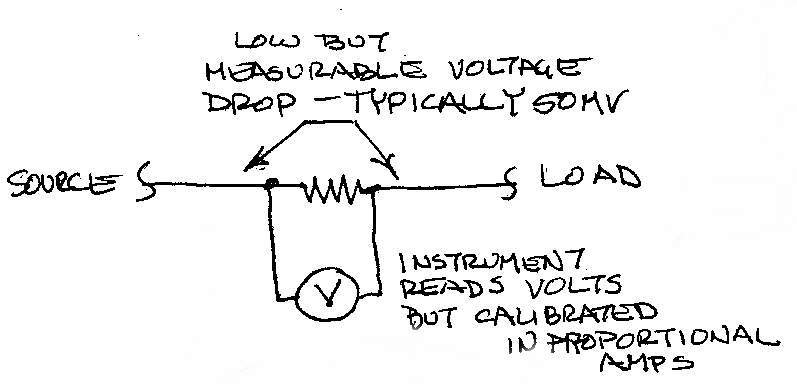 LOW BUT
MEASURABLE VOLTAGE
DROP - TYPICALLY 50MV
SOURCE
LOAD
V
INSTRUMENT
READS VOLTS
BUT CALIBRATED
IN PROPORTIONAL
AMPS